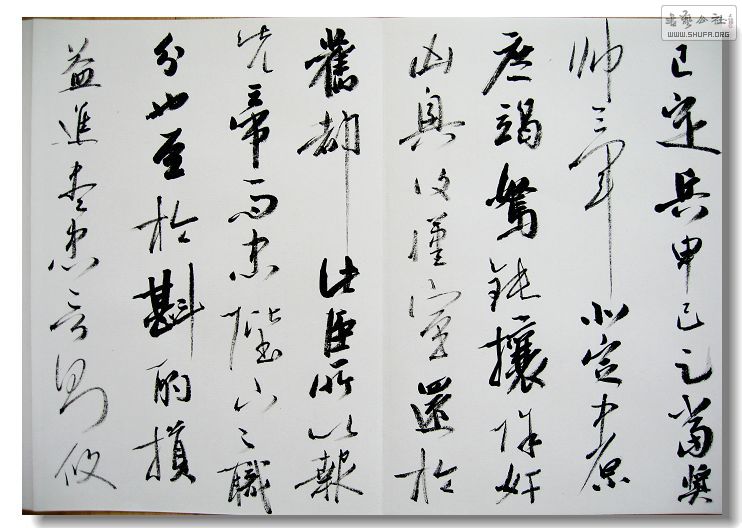 已定兵甲已足當獎
帥三軍北定中原
庶竭駑鈍攘除奸
凶興復漢室還於
舊都此臣所以報
先帝而忠陛下之職
分也至於斟酌損
益進盡忠言則攸
書藝公社
WWW.SHUFA.ORG